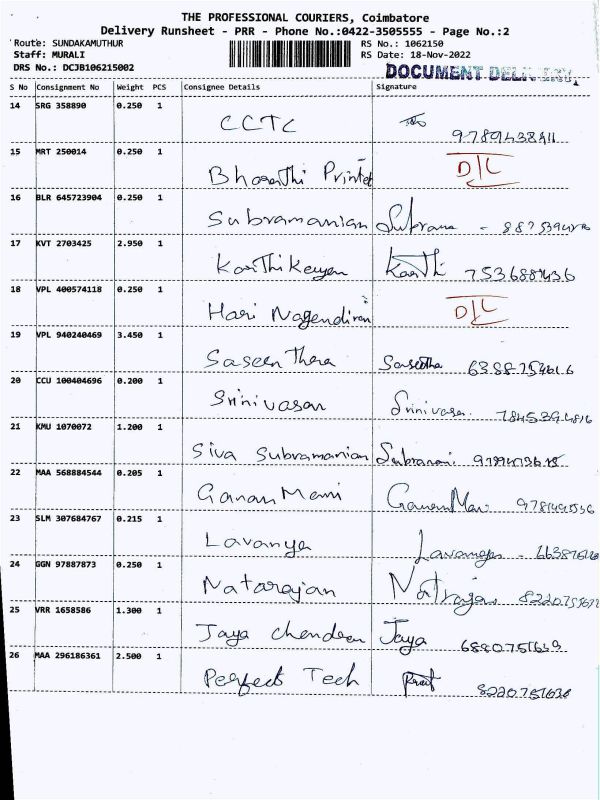 THE PROFESSIONAL COURIERS, Coimbatore
Delivery Runsheet - PRR - Phone No.:0422-3505555 - Page No.:2
Route: SUNDAKAMUTHUR RS No.: 1062150
Staff: MURALI RS Date: 18-Nov-2022
DRS No.: DCJB106215002 DOCUMENT DELIVERY
S No Consignment No Weight PCS Consignee Details Signature
14 SRG 358890 0.250 1
CCTC
15 MRT 250014 0.250 1
Bharathi Printed D/C
16 BLR 645723904 0.250 1
Subramanian
17 KVT 2703425 2.950 1
Karthikeyan Karthi
18 VPL 400574118 0.250 1
Hari Nagendiran D/C
19 VPL 940240469 3.450 1
Saseenthera
20 CCU 100404696 0.200 1
Srinivasan Srinivasa
21 KMU 1070072 1.200 1
Siva Subramanian
22 MAA 568884544 0.205 1
Ganan Mani
23 SLM 307684767 0.215 1
Lavanya
24 GGN 97887873 0.250 1
Natarajan
25 VRR 1658586 1.300 1
Jaya chendran Jaya
26 MAA 296186361 2.500 1
Perfect Tech